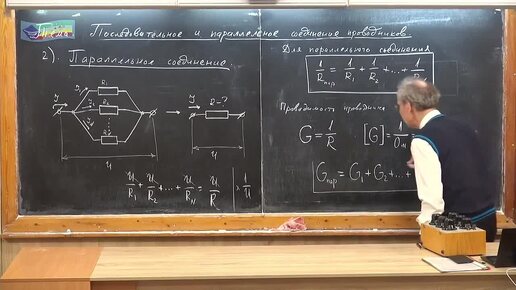 Тема Последовательное и параллельное соединение проводников
2). Параллельное соединение
R₁
R₂
I
I
R-?
U
U
U/R₁ + U/R₂ + ... + U/R_N = U/R | × 1/U
Для параллельного соединения
1/R_пар = 1/R₁ + 1/R₂ + ... +
Проводимость проводника
G = 1/R [G] = 1/Ом =
G_пар = G₁ + G₂ + ... +